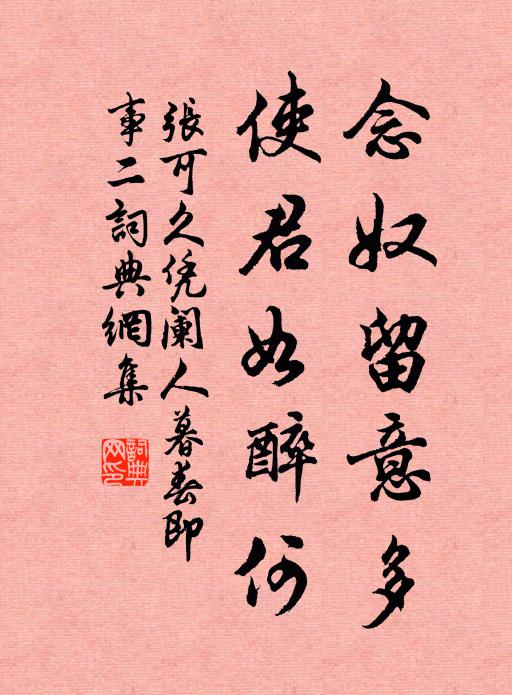 念奴留意多
使君如醉何
張可久凭阑人暮春即
事二詞典網集
詞典网印